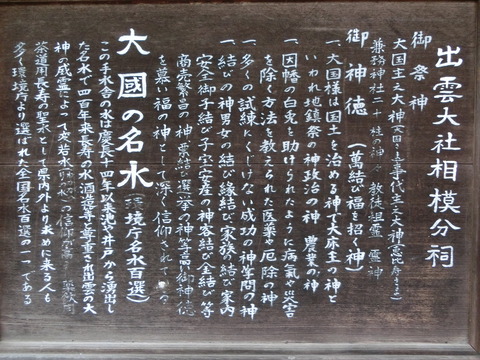 出雲大社相模分祠
御祭神
大国主之大神(大国さま)事代主之大神(恵比寿さま)
兼務神社二十 柱の神々 教徒祖霊 霊神
御神徳(萬結び福を招く神)
一、大国様は国土を治める神で大床主の神と
いわれ地鎮祭の神政治の神 農業の神
一、因幡の白兎を助けられたように病気や災害
を除く方法を教えられた医薬や厄除の神
一、多くの試練にくじけない成功の神学問の神
一、結びの神男女の結び縁結び家族の結び家内
安全御子結び子宝安産の神客結び金結び等
商売繁昌の神 票結び選挙の神等
を慕い福の神として深く信仰されて
大國の名水(環境庁名水百選)
この手水舎の水は慶長十四年以来池や井戸から湧出し
た名水で四百年来長寿の水 酒造等で尊重され出雲の大
神の威霊によって
茶道用長寿の聖水として県内外より求めに来る人も
多く環境庁より選ばれた全国名水百選の一つである